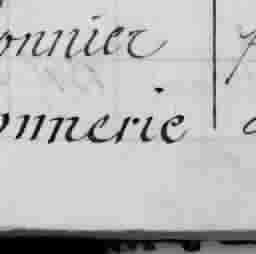 onnier
onnerie